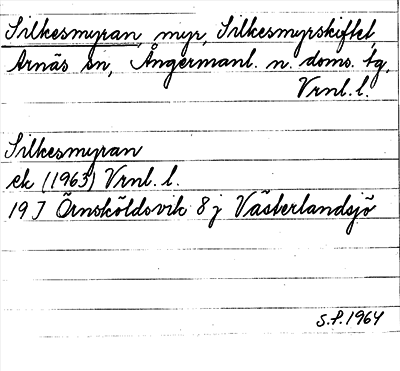 Silkesmyran, myr, Silkesmyrskiftet,
Arnäs sn, Ångermanl. n. doms. tg,
Vrnl. l.
Silkesmyran
ek (1963) Vrnl. l.
19 J Örnsköldsvik 8 j Västerlandsjö
S.F. 1964